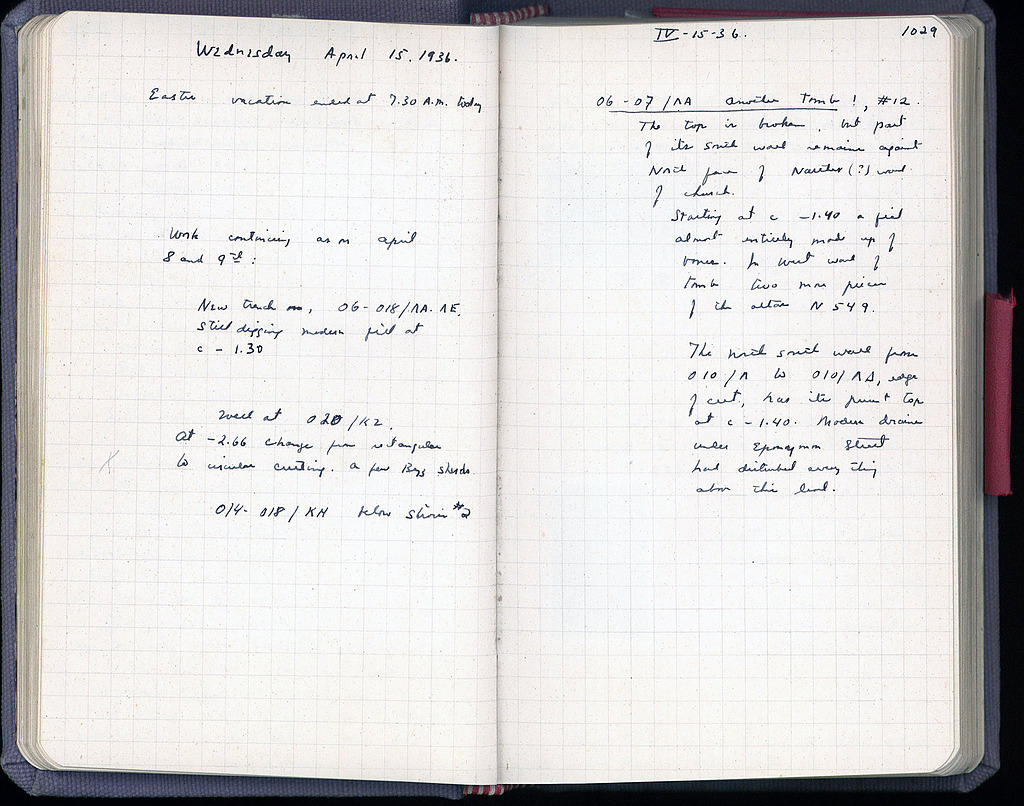 Wednesday April 15, 1936.
Easter vacation ended at 7.30 A.M. today
Work continuing as on april
8 and 9th:
New trench, 06-018/ΛA.ΛE,
Still digging modern fill at
c - 1.30
Well at 020/KZ,
At -2.66 change from rectangular
to circular cutting. a few Byz sherds.
014-018/KH below #2
IV-15-36. 1029
06-07/ΛA another tomb!, #12.
The top is broken, but part
of its south wall remains against
North face of Narthex(?) wall
of church.
Starting at c -1.40 a fill
almost entirely made up of
bones. In west wall of
tomb two more pieces
of the altar N 549.
The north south wall from
010/Λ to 010/ΛΔ, edge
of cut, has its present top
at c -1.40. Modern drains
under Eponymon Street
had disturbed every thing
above this level.